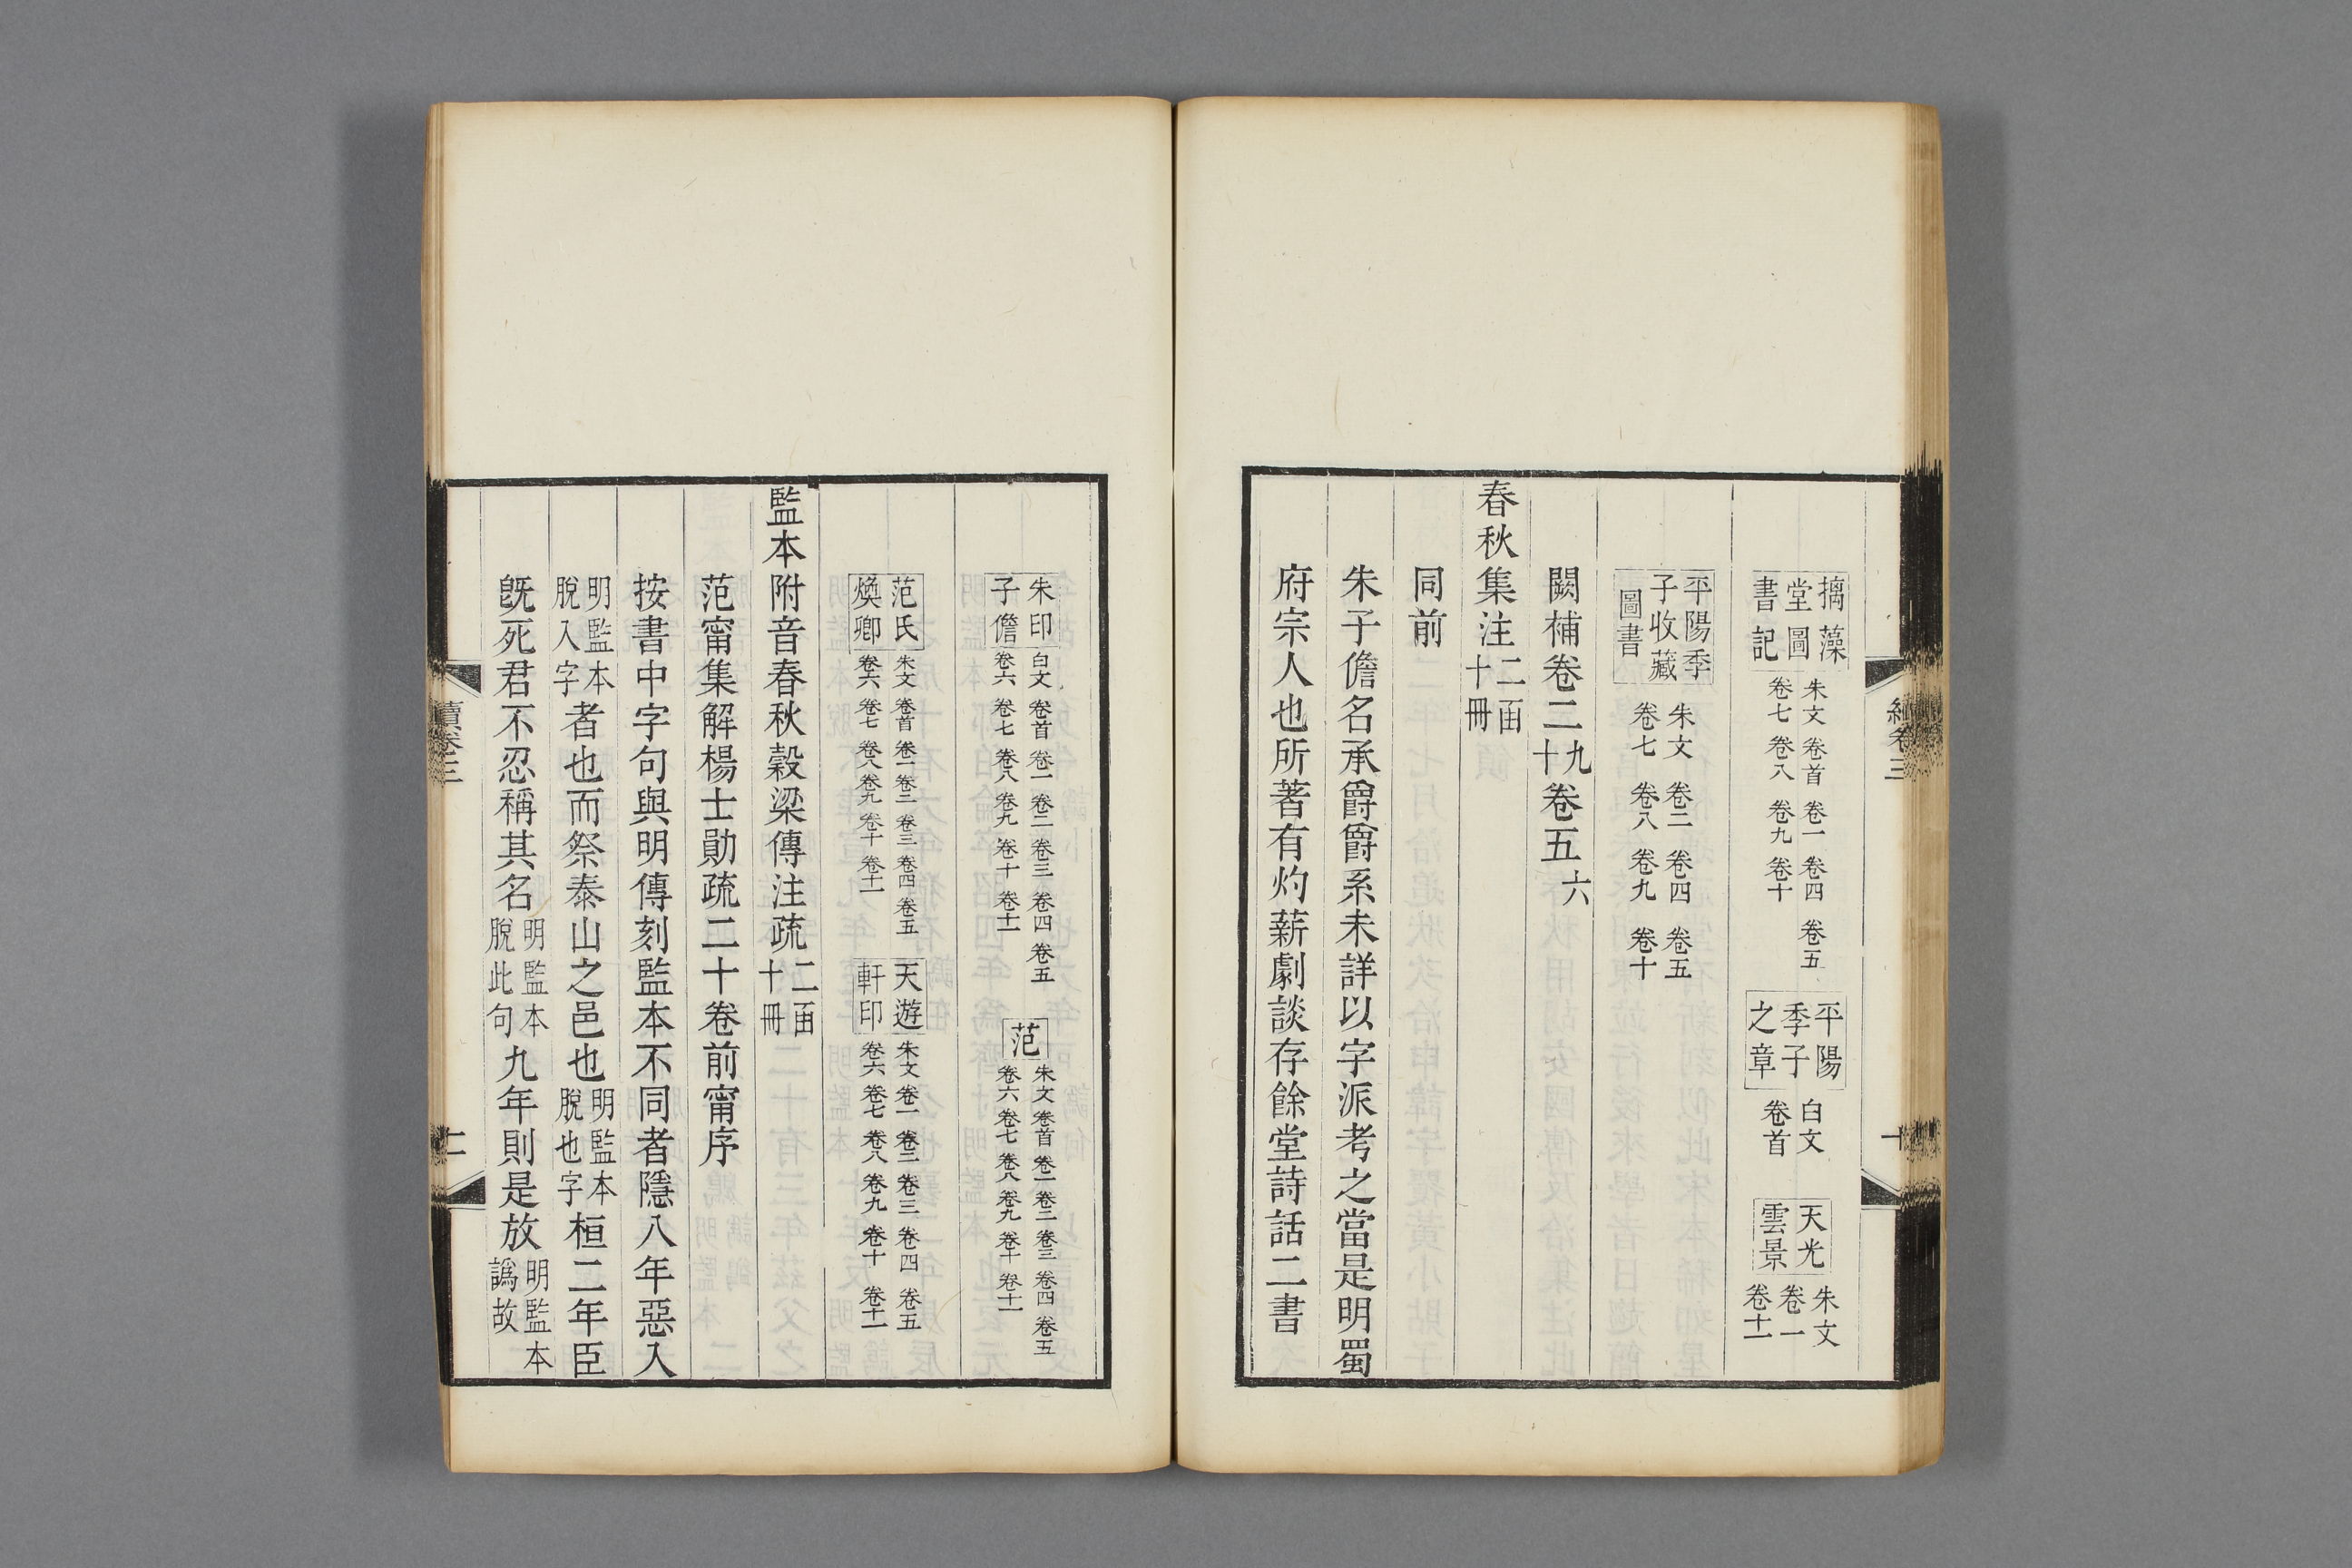 摛藻堂圖書記 朱文 卷首 卷一 卷四 卷五 卷七 卷八 卷九 卷十 平陽季子之章 白文 卷首 天光雲景 朱文 卷一 卷十一
平陽季子收藏圖書 朱文 卷二 卷四 卷五 卷七 卷八 卷九 卷十
闕補卷二九十卷五六
春秋集注二函十冊
同前
朱子儋名承爵爵系未詳以字派考之當是明蜀
府宗人也所著有灼薪劇談存餘堂詩話二書
卷三
十
朱子儋印 白文 卷首 卷一 卷二 卷三 卷四 卷五 卷六 卷七 卷八 卷九 卷十 卷十一 范 朱文 卷首 卷一 卷二 卷三 卷四 卷五 卷六 卷七 卷八 卷九 卷十 卷十一
范氏煥卿 朱文 卷首 卷一 卷二 卷三 卷四 卷五 卷六 卷七 卷八 卷九 卷十 卷十一 天遊軒印 朱文 卷一 卷二 卷三 卷四 卷五 卷六 卷七 卷八 卷九 卷十 卷十一
監本附音春秋穀梁傳注疏二函十冊
范甯集解楊士勛疏二十卷前甯序
按書中字句與明傳刻監本不同者隱八年惡入
明監本脫入字者也而祭泰山之邑也明監本脫也字桓二年臣
既死君不忍稱其名明監本脫此句九年則是放明監本譌故
續卷三
十一